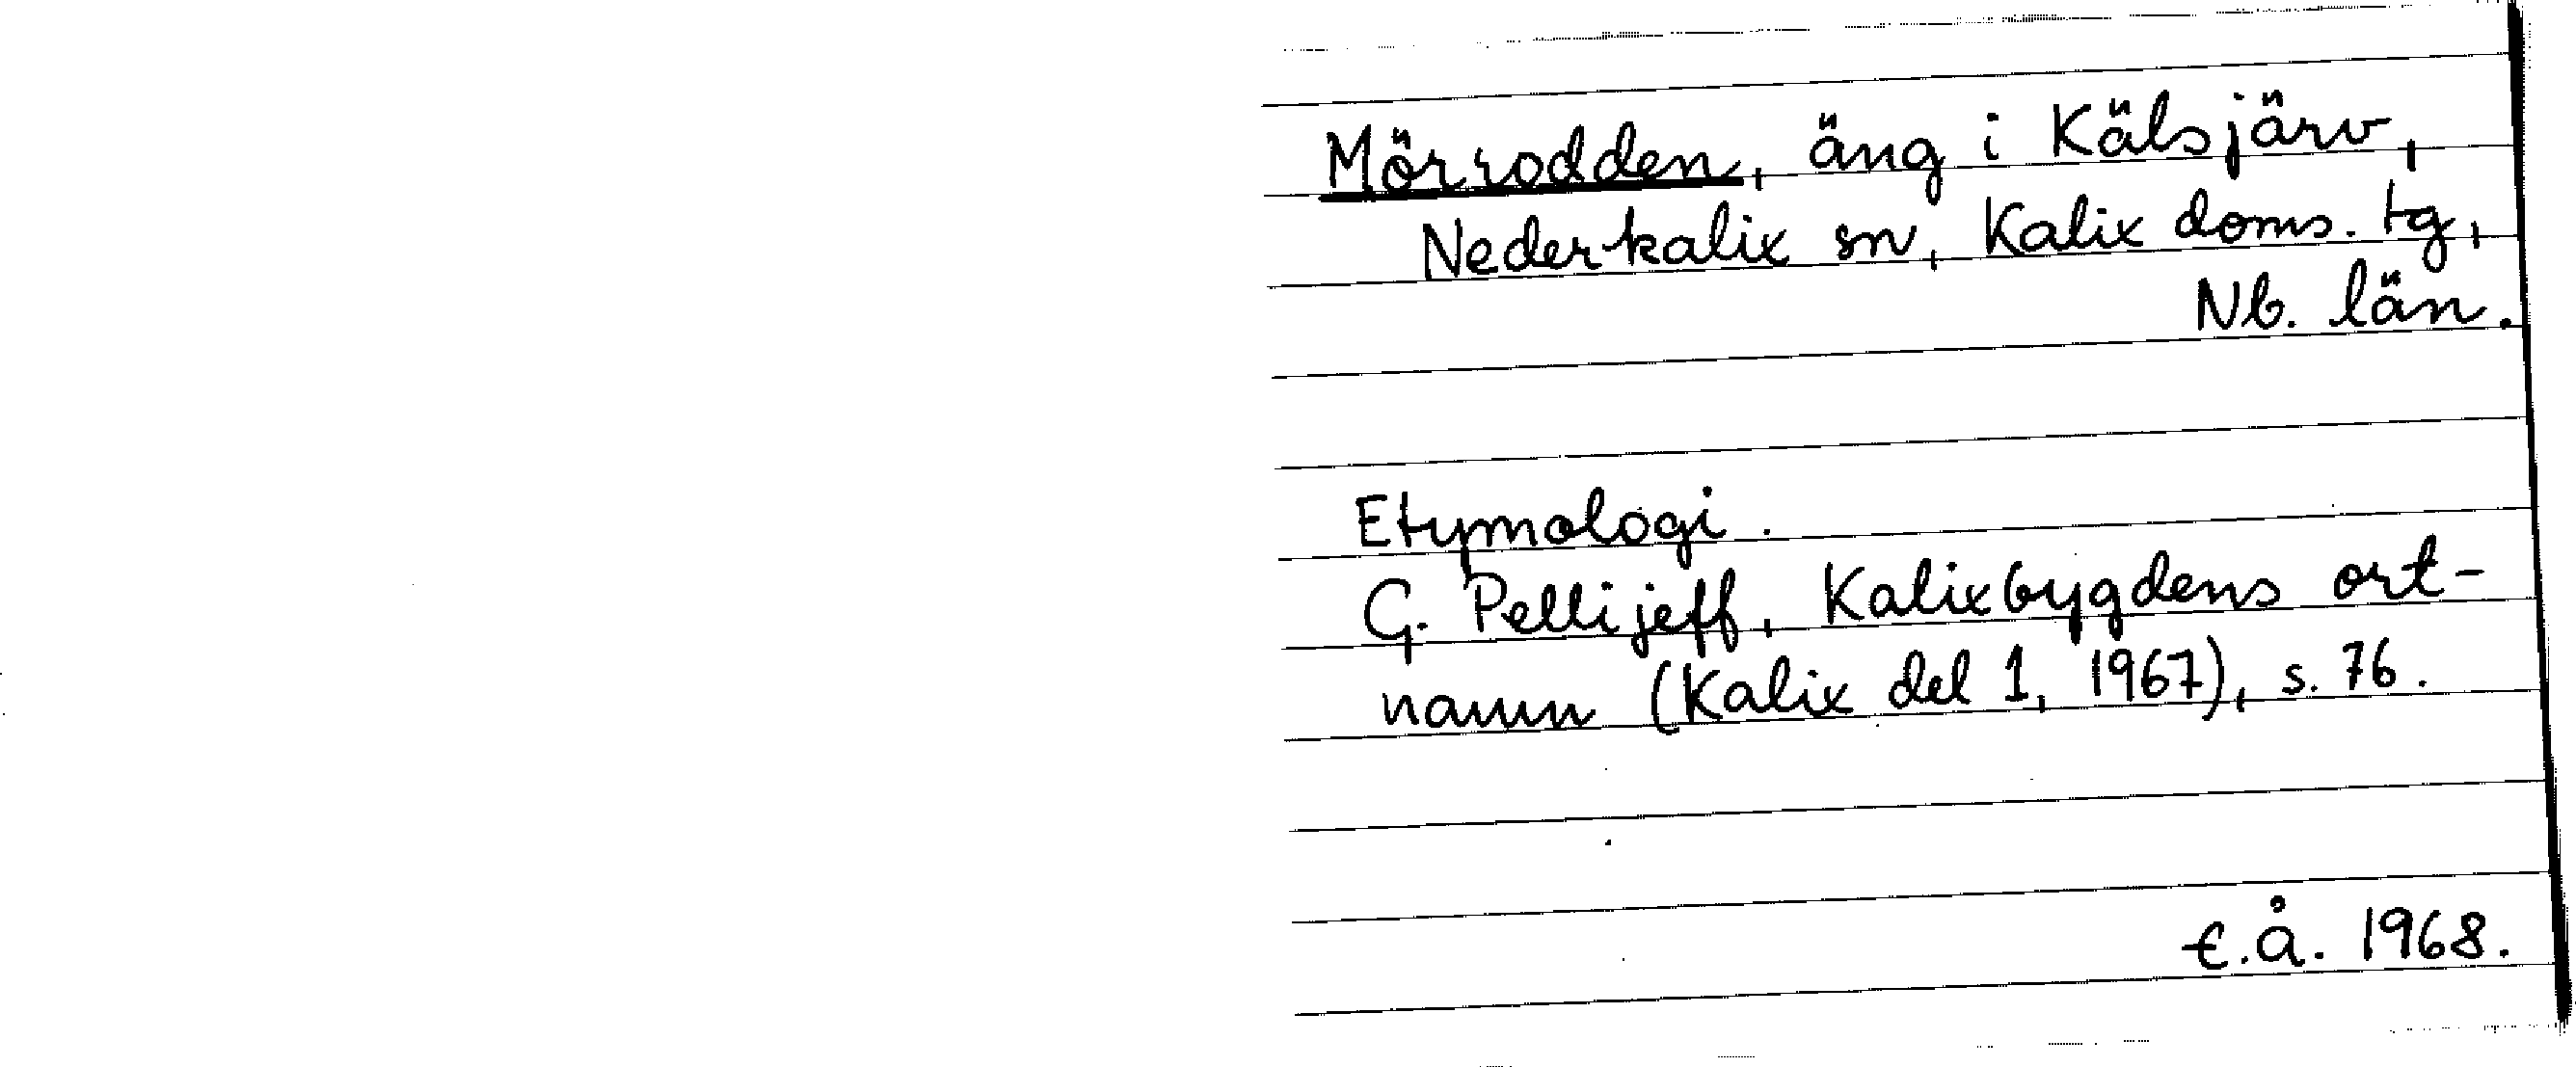 Mörrodden, äng i Kälsjärv,
Nederkalix sn, Kalix doms. tg,
Nb. län.
Etymologi.
G. Pellijeff, Kalixbygdens ort-
namn (Kalix del 1, 1967), s. 76.
t.å. 1968.